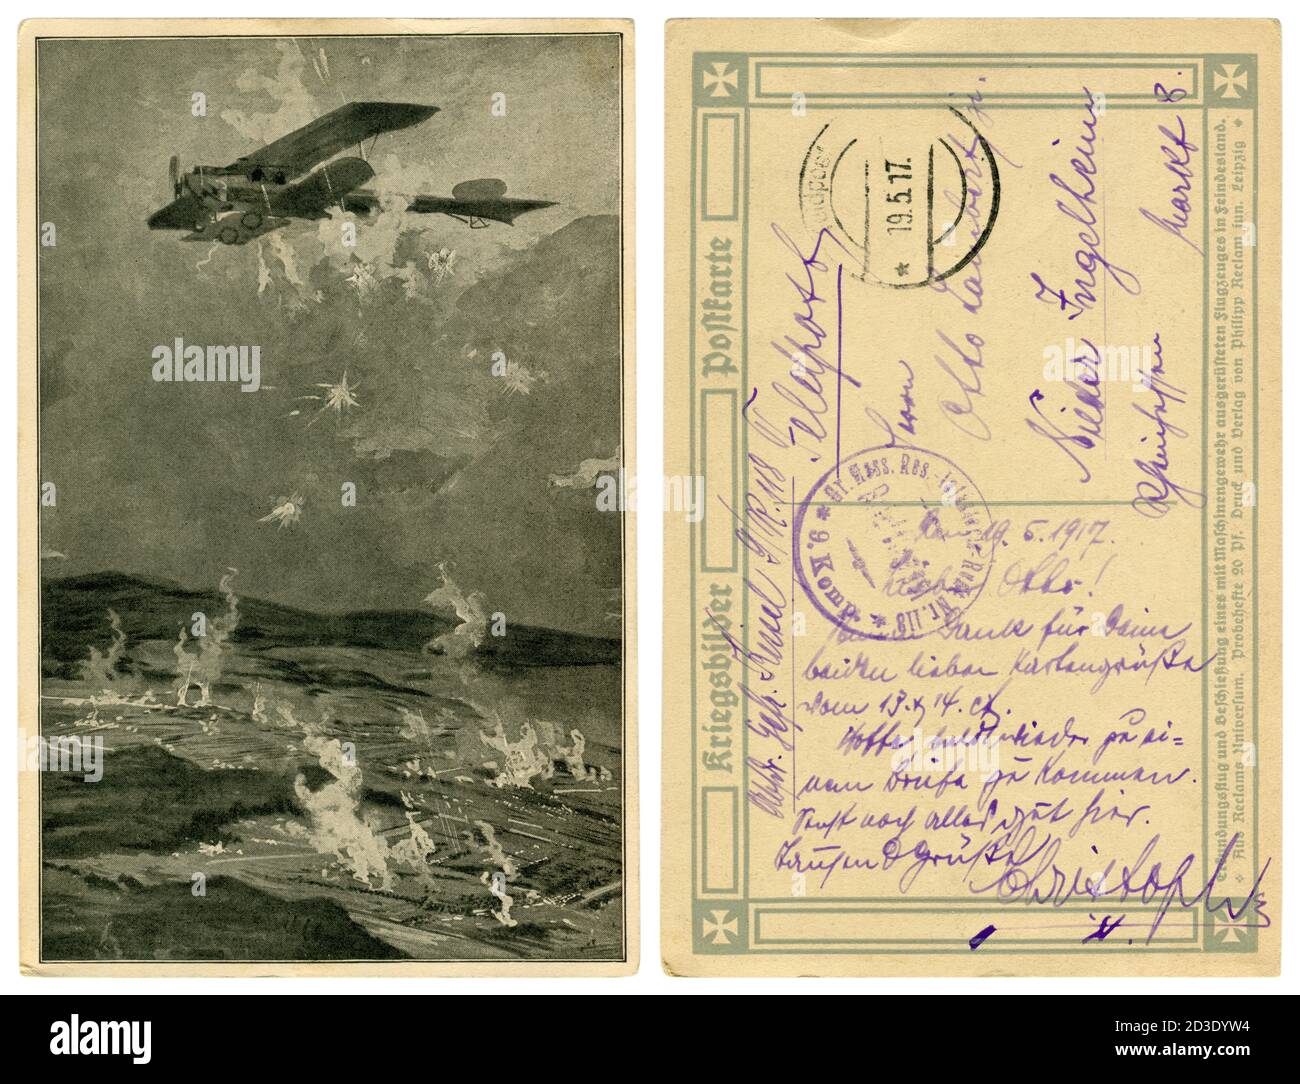 alamy
Kriegsbilder
Postkarte
Erkundungsflug und Beschießung eines mit Maschinengewehr ausgerüsteten Flugzeuges in Feindesland.
Aus Reclams Universum. Probehefte 20 Pf. Druck und Verlag von Philipp Reclam jun. Leipzig
Feldpost
19.5.17.
Feldpost
Herrn
Otto
Nieder Ingelheim
Rheinhessen
Markt 8.
* 9. Komp. * Gr. Hess. Res.-Infanterie-Reg. Nr. 118
den 19.5.1917.
Lieber Otto!
Dank für Deine
beiden lieben Kartengrüße
vom 13. & 14. ct.
Hoffe, bald wieder zu ei=
nem Briefe zu kommen.
Sonst noch alles gut hier.
Tausend Grüße
Christoph
alamy
Image ID: 2D3DYW4
www.alamy.com